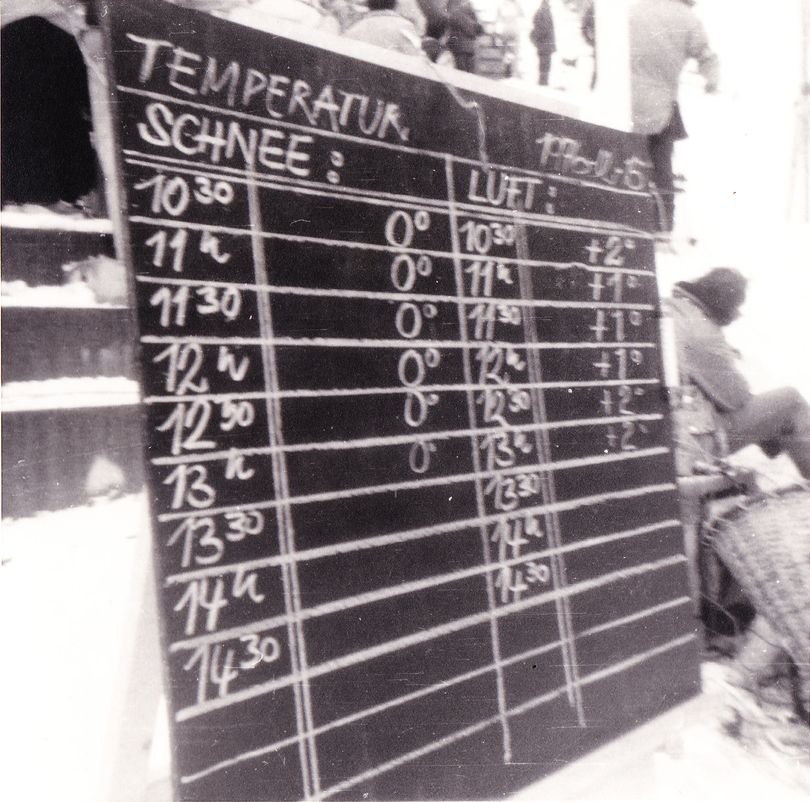 TEMPERATUR.
SCHNEE: LUFT:
10 30 0° 10 30 +2°
11 h 0° 11 h +1°
11 30 0° 11 30 +1°
12 h 0° 12 h +1°
12 30 0° 12 30 +2°
13 h 0° 13 h +2°
13 30 13 30
14 h 14 h
14 30 14 30